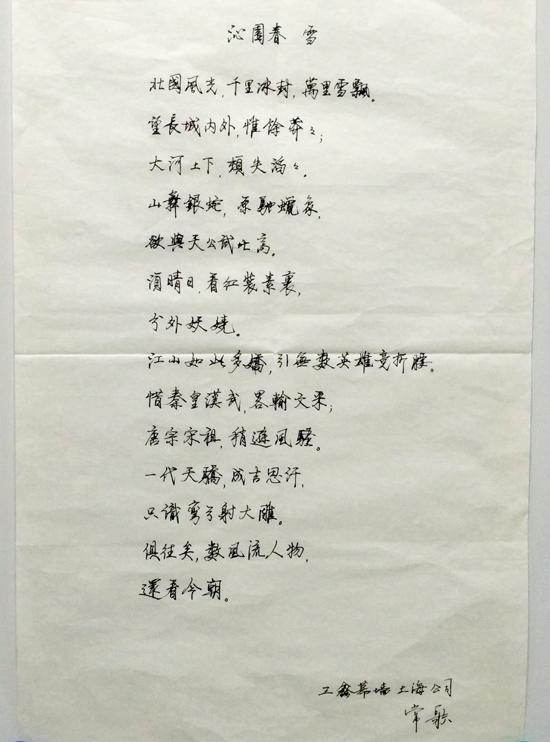 沁園春 雪
北國風光,千里冰封,萬里雪飄。
望長城内外,惟餘莽々;
大河上下,頓失滔々。
山舞銀蛇,原馳蠟象,
欲與天公試比高。
須晴日,看红裝素裹,
分外妖嬈。
江山如此多嬌,引無數英雄竞折腰。
惜秦皇漢武,畧輸文采;
唐宗宋祖,稍遜風騷。
一代天驕,成吉思汗,
只識彎弓射大雕。
俱往矣,數風流人物,
還看今朝。
工鑫幕墙上海公司
常歌